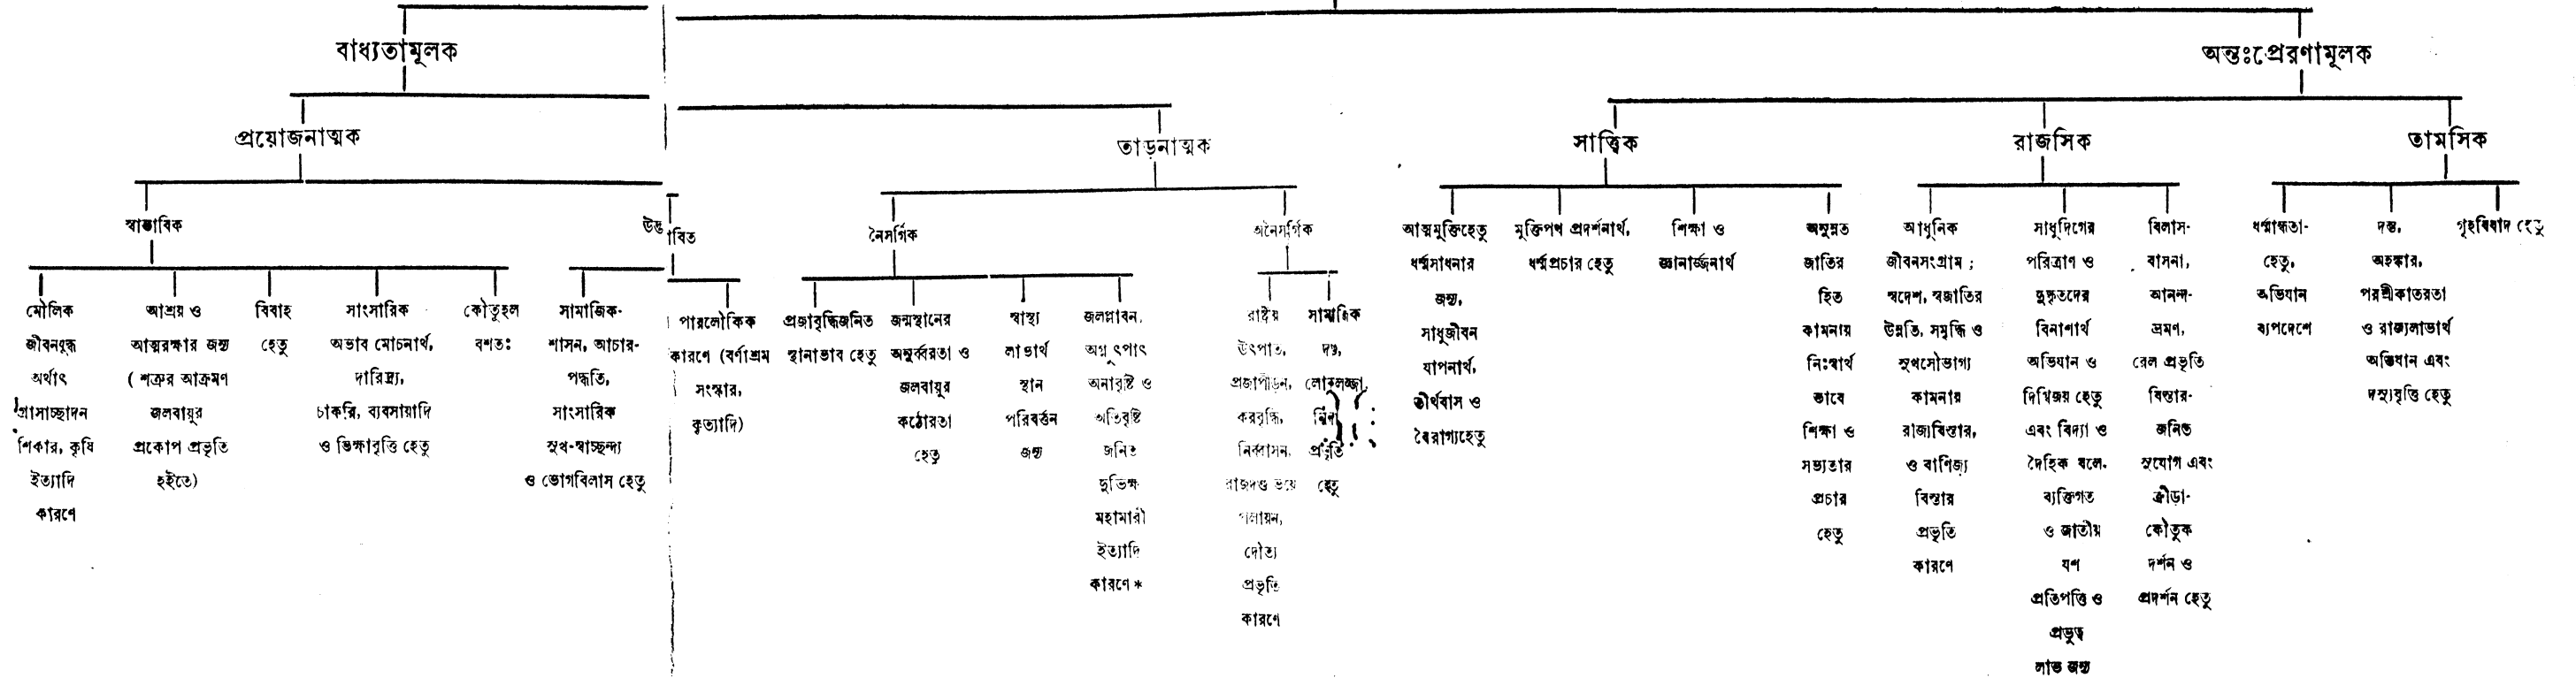 বাধ্যতামূলক
অন্তঃপ্রেরণামূলক
প্রয়োজনাত্মক
তাড়নাত্মক
সাত্ত্বিক
রাজসিক
তামসিক
স্বাভাবিক
উদ্ভাবিত
নৈসর্গিক
অনৈসর্গিক
মৌলিক
জীবনযুদ্ধ
অর্থাৎ
গ্রাসাচ্ছাদন
শিকার, কৃষি
ইত্যাদি
কারণে
আশ্রয় ও
আত্মরক্ষার জন্য
( শত্রুর আক্রমণ
জলবায়ুর
প্রকোপ প্রভৃতি
হইতে)
বিবাহ
হেতু
সাংসারিক
অভাব মোচনার্থ,
দারিদ্র্য,
চাকরি, ব্যবসায়াদি
ও ভিক্ষাবৃত্তি হেতু
কৌতূহল
বশতঃ
সামাজিক-
শাসন, আচার-
পদ্ধতি,
সাংসারিক
সুখ-স্বাচ্ছন্দ্য
ও ভোগবিলাস হেতু
পারলৌকিক
কারণে (বর্ণাশ্রম
সংস্কার,
কৃত্যাদি)
প্রজাবৃদ্ধিজনিত
স্থানাভাব হেতু
জন্মস্থানের
অনুর্ব্বরতা ও
জলবায়ুর
কঠোরতা
হেতু
স্বাস্থ্য
লাভার্থ
স্থান
পরিবর্ত্তন
জন্য
জলপ্লাবন,
অগ্ন্যুৎপাৎ
অনাবৃষ্টি ও
অতিবৃষ্টি
জনিত
দুর্ভিক্ষ
মহামারী
ইত্যাদি
কারণে *
রাষ্ট্রীয়
উৎপাত,
প্রজাপীড়ন,
করবৃদ্ধি,
নির্ব্বাসন,
রাজদণ্ড ভয়ে
পলায়ন,
দৌত্য
প্রভৃতি
কারণে
সামাজিক
দণ্ড,
লোকলজ্জা,
নিন্দা
প্রভৃতি
হেতু
আত্মমুক্তিহেতু
ধর্ম্মসাধনার
জন্য,
সাধুজীবন
যাপনার্থ,
তীর্থবাস ও
বৈরাগ্যহেতু
মুক্তিপথ প্রদর্শনার্থ,
ধর্ম্মপ্রচার হেতু
শিক্ষা ও
জ্ঞানার্জ্জনার্থ
অনুন্নত
জাতির
হিত
কামনায়
নিঃস্বার্থ
ভাবে
শিক্ষা ও
সভ্যতার
প্রচার
হেতু
আধুনিক
জীবনসংগ্রাম ;
স্বদেশ, স্বজাতির
উন্নতি, সমৃদ্ধি ও
সুখসৌভাগ্য
কামনায়
রাজ্যবিস্তার,
ও বাণিজ্য
বিস্তার
প্রভৃতি
কারণে
সাধুদিগের
পরিত্রাণ ও
দুষ্কৃতদের
বিনাশার্থ
অভিযান ও
দিগ্বিজয় হেতু
এবং বিদ্যা ও
দৈহিক বলে.
ব্যক্তিগত
ও জাতীয়
যশ
প্রতিপত্তি ও
প্রভুত্ব
লাভ জন্য
বিলাস-
বাসনা,
আনন্দ-
ভ্রমণ,
রেল প্রভৃতি
বিস্তার-
জনিত
সুযোগ এবং
ক্রীড়া-
কৌতুক
দর্শন ও
প্রদর্শন হেতু
ধর্ম্মান্ধতা-
হেতু,
অভিযান
ব্যপদেশে
দম্ভ,
অহঙ্কার,
পরশ্রীকাতরতা
ও রাজ্যলাভার্থ
অভিযান এবং
দস্যুবৃত্তি হেতু
গৃহবিবাদ হেতু